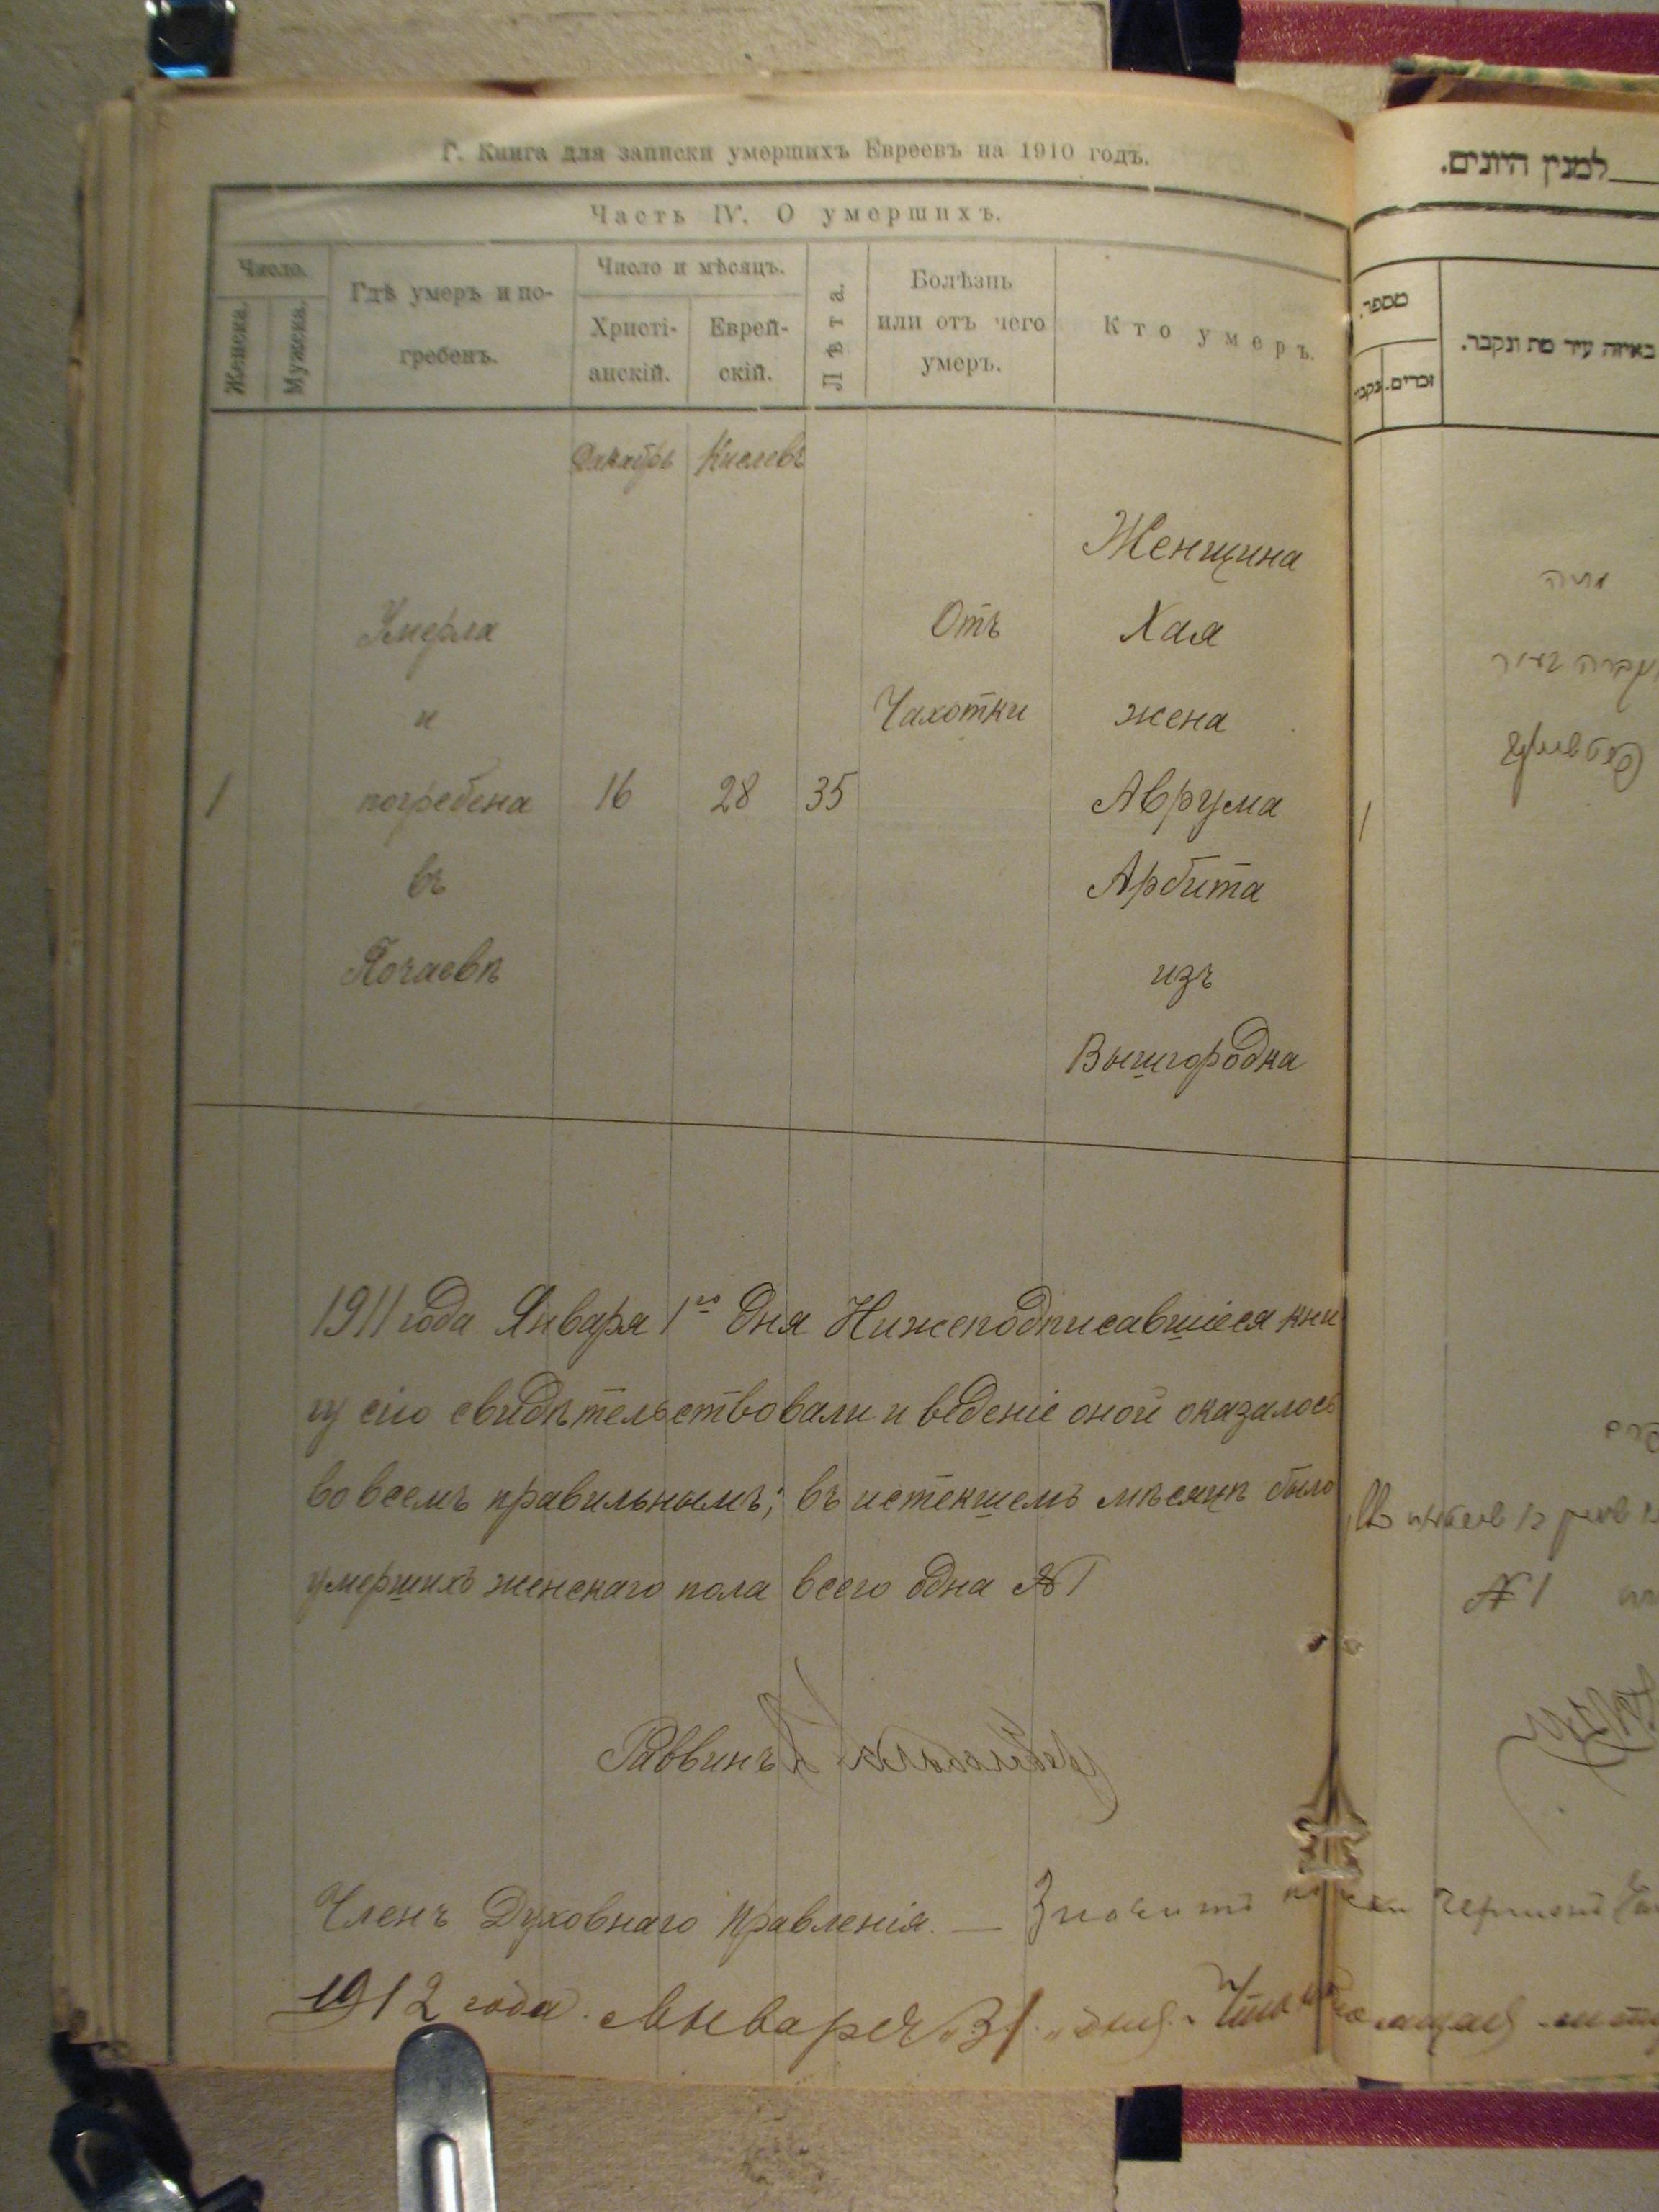 Г. Книга для записки умершихъ Евреевъ на 1910 годъ.
Часть IV. О умершихъ.
Число.
Женска.
Мужеска.
Гдѣ умеръ и по-
гребенъ.
Число и мѣсяцъ.
Христі-
анскій.
Еврей-
скій.
Лѣта.
Болѣзнь
или отъ чего
умеръ.
Кто умеръ.
Декабрь Кислевъ
Женщина
Умерла Отъ Хая
и Чахотки жена
1 погребена 16 28 35 Аврума
въ Арбита
Почаевѣ изъ
Вышгородка
1911 года Января 1го дня Нижеподписавшіеся кни
гу сію свидѣтельствовали и веденіе оной оказалось
во всемъ правильнымъ; въ истекшемъ мѣсяцѣ было
умершихъ женскаго пола всего одна №1
Раввинъ
Членъ Духовнаго Правленія. —
1912 года. Января „31„ дня.
למנין היונים.
מספר.
זכרים.
באיזה עיר מת ונקבר.
מתה
1
№ 1